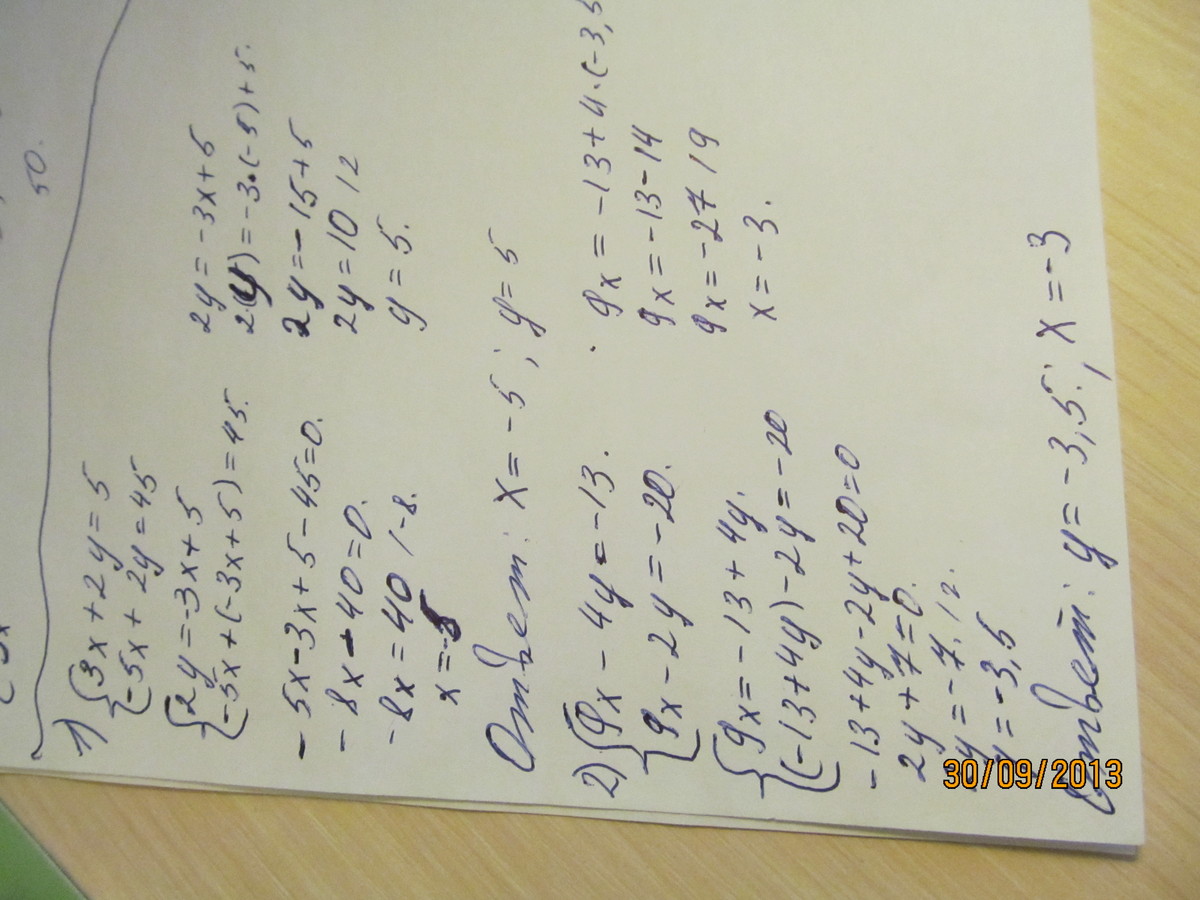 50.
1) {3x + 2y = 5
{-5x + 2y = 45
{2y = -3x + 5
{-5x + (-3x + 5) = 45.
-5x - 3x + 5 - 45 = 0.
-8x - 40 = 0.
-8x = 40 /-8.
x = -5
2y = -3x + 5
2(y) = -3·(-5) + 5.
2y = -15 + 5
2y = 10 /2
y = 5.
Ответ: x = -5; y = 5
2) {9x - 4y = -13.
{9x - 2y = -20.
{9x = -13 + 4y.
{(-13 + 4y) - 2y = -20
-13 + 4y - 2y + 20 = 0
2y + 7 = 0.
2y = -7. /2.
y = -3,5
9x = -13 + 4·(-3,5
9x = -13 - 14
9x = -27 /9
x = -3.
Ответ: y = -3,5; x = -3
30/09/2013